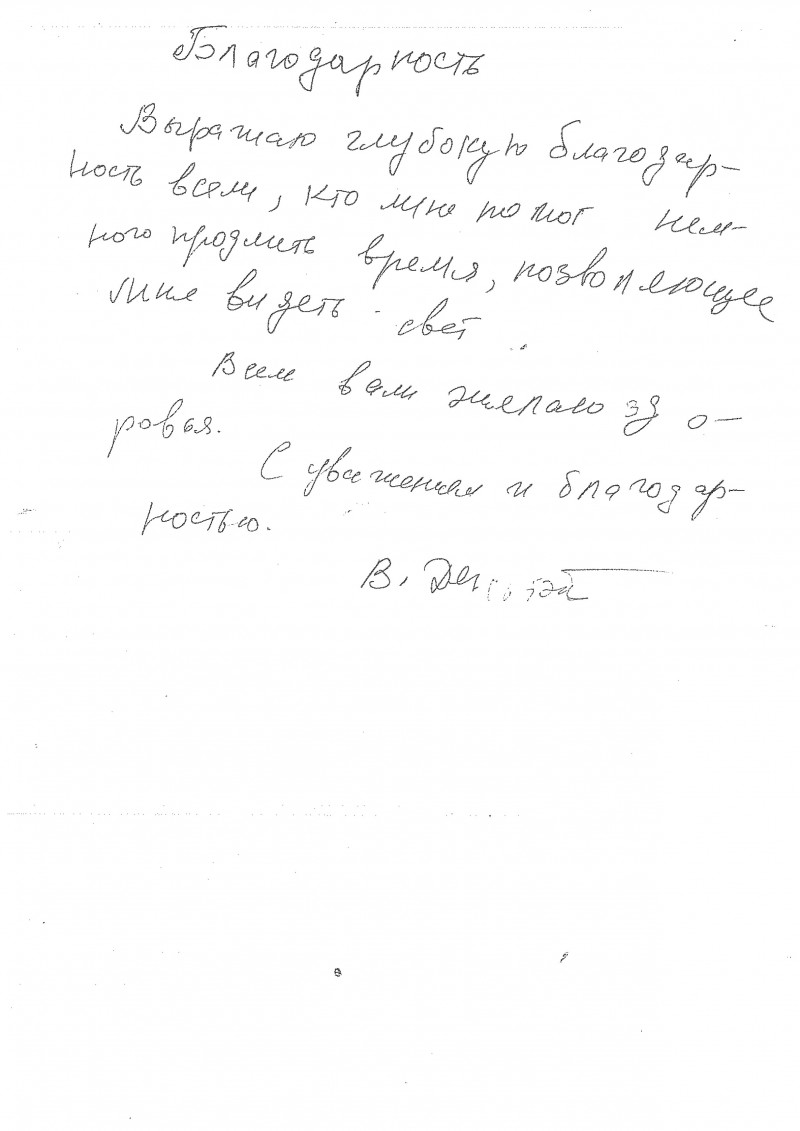 Благодарность
Выражаю глубокую благодар-
ность всем, кто мне помог нем-
ного продлить время, позволяющее
мне видеть свет
Всем вам желаю здо-
ровья.
С уважением и благодар-
ностью.
В.